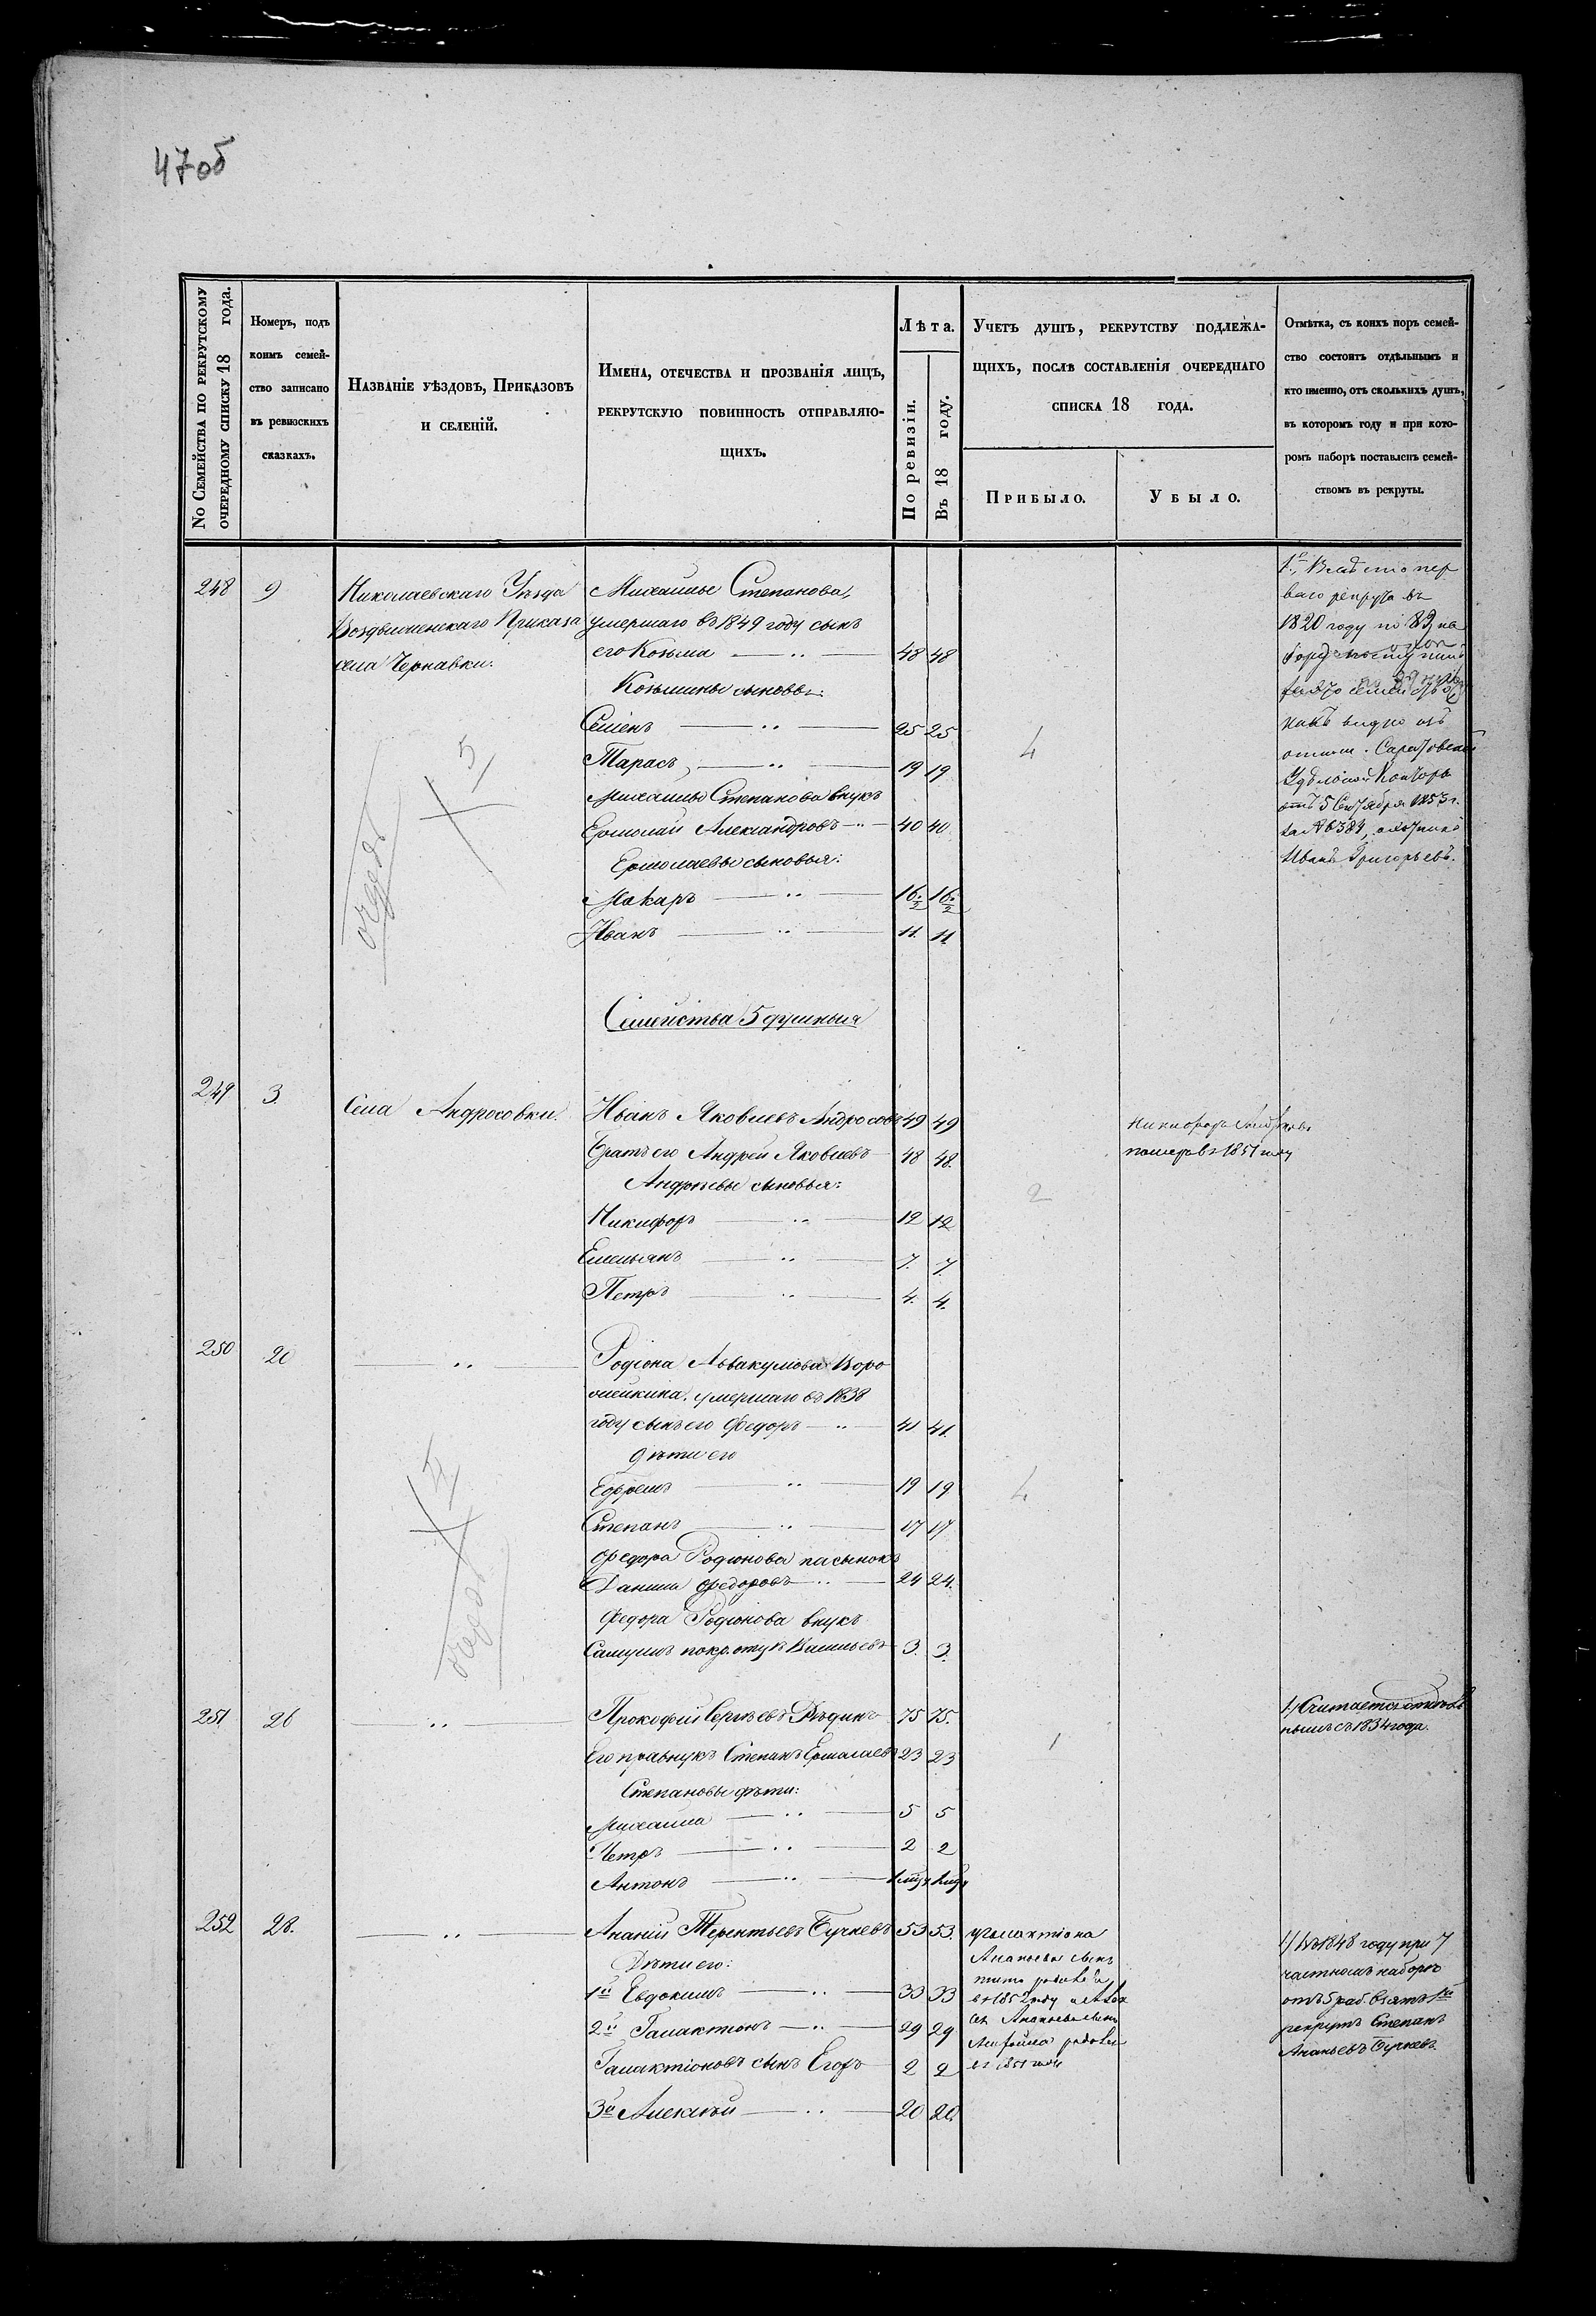 47об
No Семейства по рекрутскому
очередному списку 18 года.
Номеръ, подъ
коимъ семей-
ство записано
въ ревизскихъ
сказкахъ.
Названіе уѣздовъ, Приказовъ
и селеній.
Имена, отечества и прозванія лицъ,
рекрутскую повинность отправляю-
щихъ.
Лѣта.
По ревизіи.
Въ 18 году.
Учетъ душъ, рекрутству подлежа-
щихъ, послѣ составленія очереднаго
списка 18 года.
Прибыло.
Убыло.
Отмѣтка, съ коихъ поръ семей-
ство состоитъ отдѣльнымъ и
кто именно, отъ сколькихъ душъ,
въ которомъ году и при кото-
ромъ наборѣ поставленъ семей-
ствомъ въ рекруты.
248 9 Николаевскаго Уѣзда Михайлы Степанова,
Воздвиженскаго Приказа умершаго въ 1849 году сынъ
села Чернавки. его Козьма 48 48
Козьмины сыновья:
Семенъ 25 25
Тарасъ 19 19
Михайлы Степанова внукъ
Ермолай Александровъ 40 40
Ермолаевы сыновья:
Макаръ 16½ 16½
Иванъ 11. 11
4
5
очередь
ваго рекрута въ
1820 году по 83 на
какъ видно изъ
Саратовской
Удѣльной Конторы
отъ 5 Сентября 1853 г.
за № 6384,
Иванъ Григорьевъ.
Семейства 5 душныя
249 3. Села Андросовки. Иванъ Яковлевъ Андросовъ 49 49
Братъ его Андрей Яковлевъ 48 48.
Андреевы сыновья:
Никифоръ 12 12
Емельянъ 7. 7.
Петръ 4. 4.
2
Никифоръ Андреевъ
померъ въ 1851 году
250 20 Родіона Аввакумова Воро
умершаго въ 1838
году сынъ его Федоръ 41 41.
Дѣти его
Ефремъ 19 19
Степанъ 17 17
Федора Родіонова пасынокъ
Данила Федоровъ 24 24.
Федора Родіонова внукъ
Самуилъ по кр. отцу Васильевъ 3. 3.
4
5
очередь
251 26 Прокофій Сергѣевъ Дѣдинъ 75 75.
Его правнукъ Степанъ Ермолаевъ 23 23
Степановы дѣти:
Михаила 5 5
Петръ 2 2
Антонъ
1
1) Считается отдѣль
нымъ съ 1834 года.
252 28. Ананій Терентьевъ Бучневъ 53 53.
Дѣти его:
1й Евдокимъ 33 33
2й Галактіонъ 29 29
Галактіоновъ сынъ Егоръ 2 2
3й Алексѣй 20 20
Галактіона
Ананьева сынъ
въ 1852 году
Ананьева сынъ
въ 1851 году
1) Въ 1848 году при 7
частномъ наборѣ
отъ 5 раб. взятъ 1й
рекрутъ Степанъ
Ананьевъ Бучневъ.